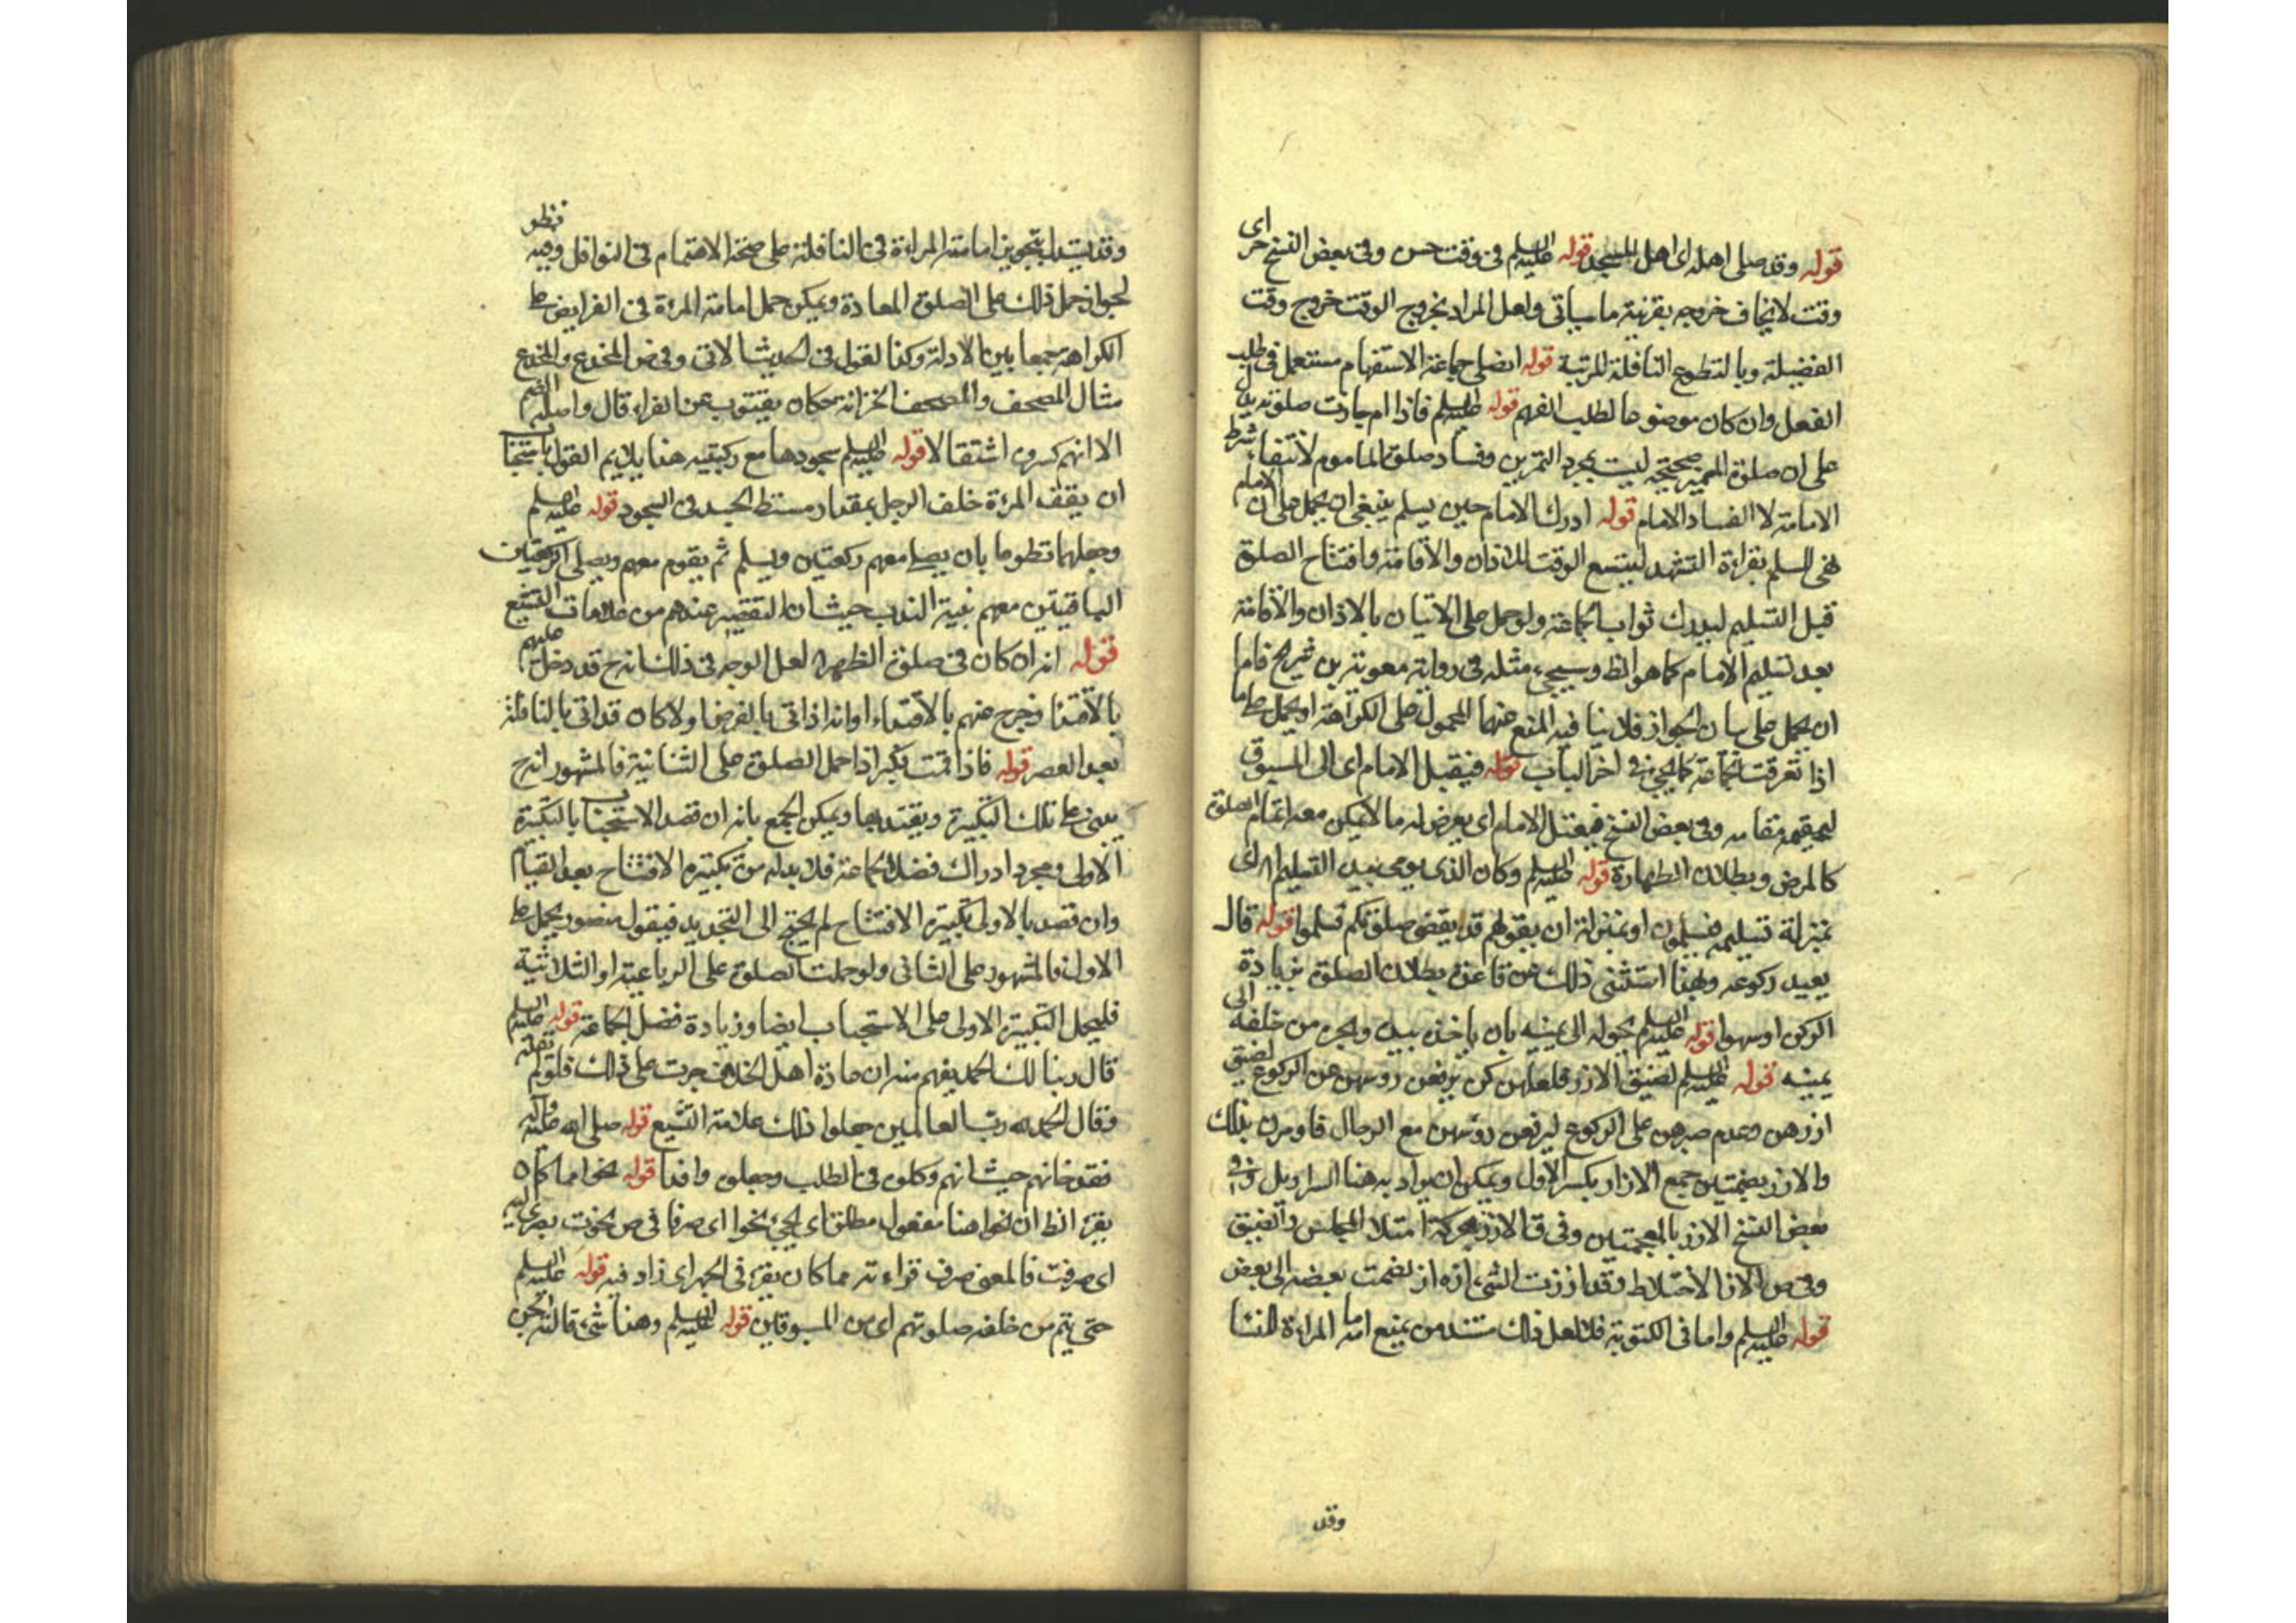 قوله وقد صلى اهله اى اهل المسجد قوله عليه السلم فى وقت حسن وفى بعض النسخ حر اى
وقت لا يخاف خروجه بقرينة ما سياتى ولعل المراد بخروج الوقت خروج وقت
الفضيلة وبالتطوع النافلة المرتبة قوله ايصلى جماعة الاستفهام مستعمل فى طلب
الفعل وان كان موضوعا لطلب الفهم قوله عليه السلم فاذا ام جازت صلوته يدل
على ان صلوة المميز صحيحة ليست بمجرد التمرين وفساد صلوة الماموم لانتفاء شرط
الامامة لا لفساد الامام قوله ادرك الامام حين يسلم ينبغى ان يحمل على ان الامام
فى السلم بقراءة التشهد ليتسع الوقت للاذان والاقامة وافتتاح الصلوة
قبل التسليم ليدرك ثواب الجماعة ولو حمل على الاتيان بالاذان والاقامة
بعد تسليم الامام كما هو الظ وسيجىء مثله فى رواية معوية بن شريح فاما
ان يحمل على بيان الجواز فلا ينا فيه المنع عنها المحمول على الكراهة او يحمل على ما
اذا تفرقت الجماعة كما يجىء فى اخر الباب قوله فيقبل الامام اى الى المسبوق
ليقيمه مقامه وفى بعض النسخ فيعتل الامام اى يعرض له ما لا يمكن معه اتمام الصلوة
كالمرض وبطلان الطهارة قوله عليه السلم وكان الذى يومى بيده التسليم اى
بمنزلة تسليمه فيسلمون او بمنزلة ان يقول لهم قد يقض صلوتكم فسلموا قوله قال
يعيد ركوعه ولهذا استثنى ذلك عن قاعدة بطلان الصلوة بزيادة
الركن او سهوا قوله عليه السلم يحوله الى يمينه بان ياخذه بيده ويجره من خلفه الى
يمينه قوله عليه السلم لضيق الازر فلعلهن كن يرفعن رؤسهن عن الركوع لضيق
ازرهن وعدم صبرهن على الركوع ليرفعن رؤسهن مع الرجال فاومرن بذلك
والازر بضمتين جمع الازار بكسر الاول ويمكن ان يراد به هنا السراويل وفى
بعض النسخ الازز بالمعجمتين وفى ق الازز محركة امتلا المجالس والضيق
وفى ص الاز الاختلاط وقد ازرت الشى ازه از لضمت بعضه الى بعض
قوله عليه السلم واما فى المكتوبة فلا لعل ذلك مستند من يمنع امامة المراءة للنسا
وقد
وقد يستدل بتجويز امامة المراءة فى النافلة على صحة الاهتمام فى النوافل وفيه نظر
لجواز حمل ذلك على الصلوة المعادة ويمكن حمل امامة المرءة فى الفرايض على
الكراهة جمعا بين الادلة وكذا لقول فى الحديث الاتى وفى ص المخدع والمخدع
مثال المصحف والمصحف الخزانة حكاه يعقوب عن الفراء قال واصله الضم
الا انهم كسروه استثقالا قوله عليه السلم سجودها مع ركبتيه هذا يلايم القول باستحباب
ان يقف المرءة خلف الرجل بمقدار مسقط الجسد فى السجود قوله عليه السلم
وجعلهما تطوعا بان يصلى معهم ركعتين ويسلم ثم يقوم معهم ويصلى الركعتين
الباقيتين معهم بنية الندب حيث ان التقصير عندهم من علامات التشيع
قوله انه ان كان فى صلوة الظهر لعل الوجه فى ذلك انه ح قد دخل عليهم
بالاقتدا وخرج عنهم بالاقتداء او انه اذا اتى بالفرض اولا كان قد اتى بالنافلة
بعد العصر قوله فاذا قمت فكبر اذا حمل الصلوة على الثنانية فالمشهور انه ح
يبنى على تلك التكبيرة ويقتد بها ويمكن الجمع بانه ان قصد الاستحباب بالتكبيرة
الاولى ومجرد ادراك فضل الجماعة فلا بد له من تكبيرة الافتتاح بعد القيام
وان قصد بالاولى تكبيرة الافتتاح لم يحتج الى التجديد فيقول منصور يحمل على
الاول فالمشهور على الثانى ولو حملت الصلوة على الرباعية او الثلاثية
فليحمل التكبيرة الاولى على الاستحباب ايضا وزيادة فضل الجماعة قوله عليه السلم
قال ربنا لك الحمد يفهم منه ان عادة اهل الخلاف جرت على ذلك فلو لم يقله
وقال الحمد لله رب العالمين جعلوا ذلك علامة التشيع قوله صلى الله عليه واله
فقدوخانهم حيث انهم وكلوه فى الطلب وجعلوه وافدا قوله نحوا مما كان
يقرء الظ ان نحوا هنا مفعول مطلق اى يجىء نحوا اى صرفا فى ص نحوت بصرى اليه
اى صرفت فالمعنى صرف قراءته مما كان يقرء فى الجهر اى زاد فيه قوله عليه السلم
حتى يتم من خلفه صلوتهم اى من المسبوقين قوله عليه السلم وهذا شىء قالته الجن